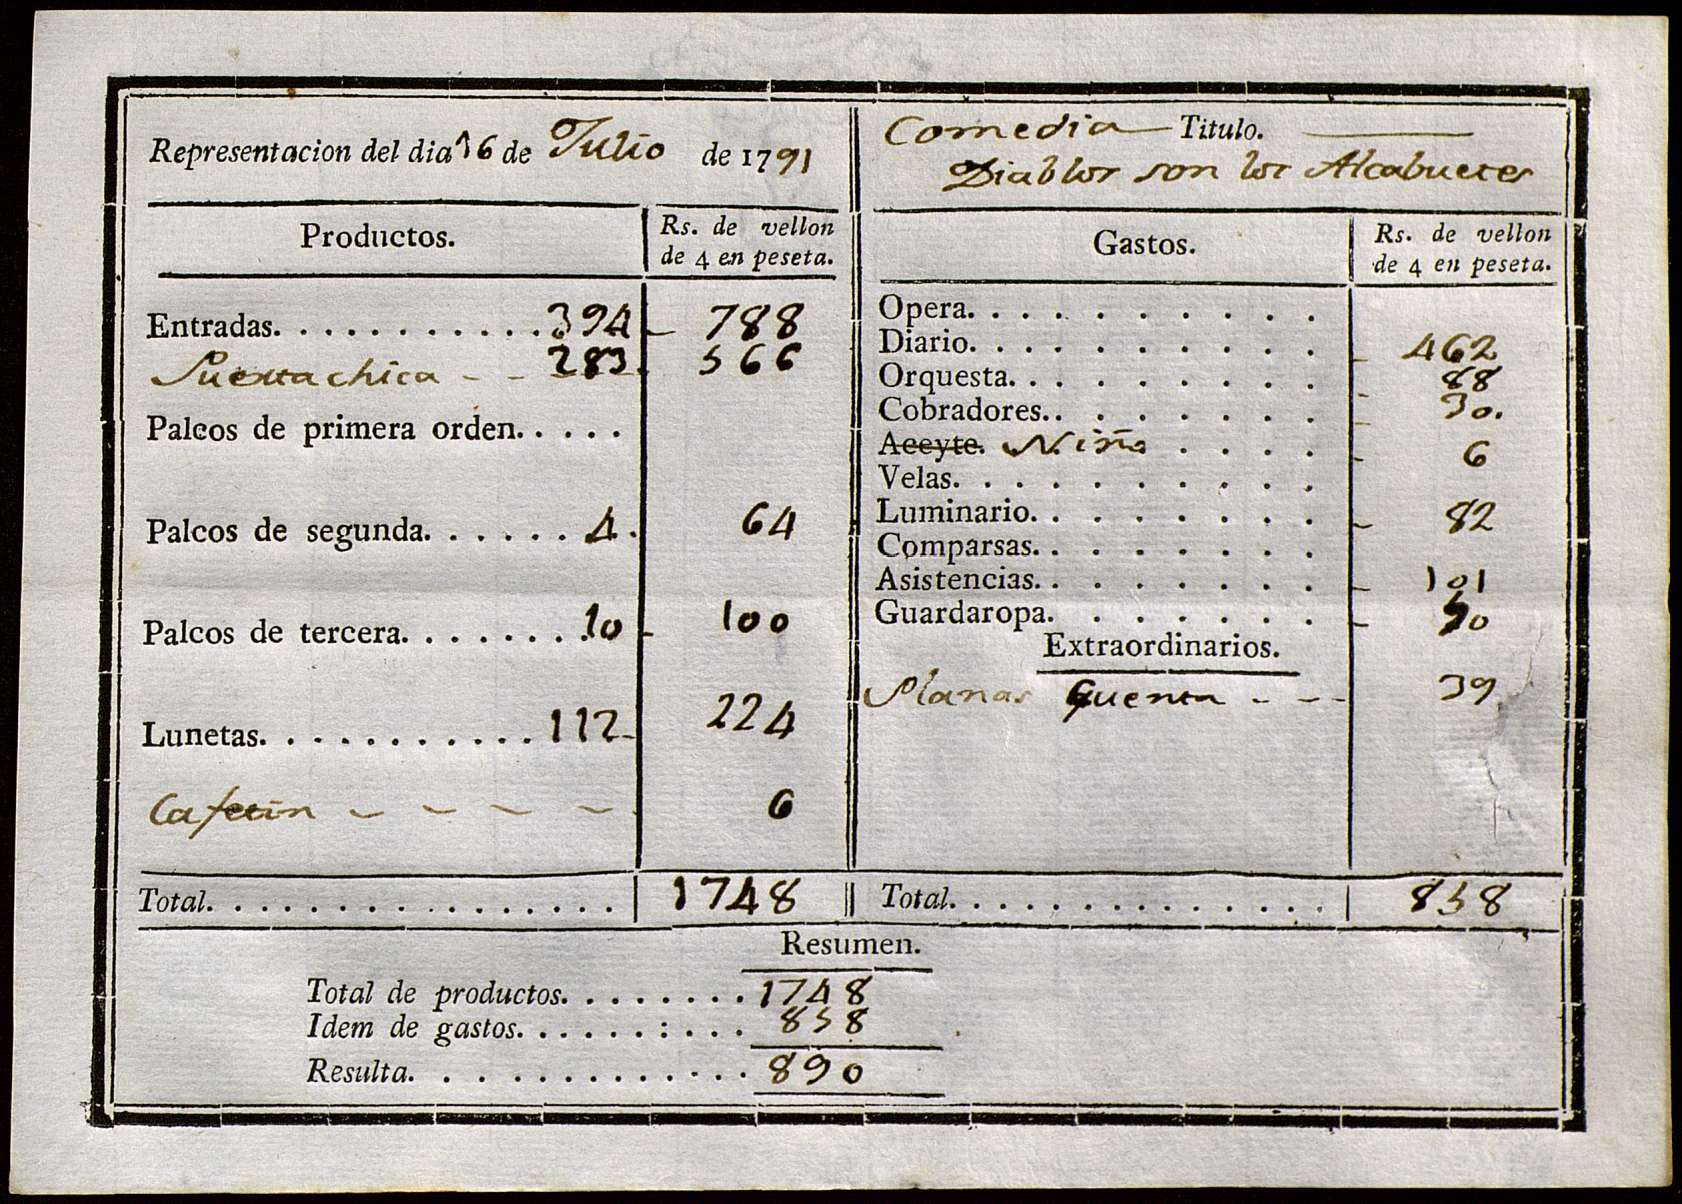 Representacion del dia 16 de Julio de 1791
Productos.
Rs. de vellon
de 4 en peseta.
Entradas. . . . . . . . . . . 394 788
Puerta chica - - 283. 566
Palcos de primera orden. . . . .
Palcos de segunda. . . . . . 4. 64
Palcos de tercera. . . . . . . . 10 - 100
Lunetas. . . . . . . . . . . 112- 224
Cafetin - - - - - 6
Total. . . . . . . . . . . . . . . . 1748
Comedia Titulo.
Diablos son los Alcabuetes
Gastos.
Rs. de vellon
de 4 en peseta.
Opera. . . . . . . . . . .
Diario. . . . . . . . . . . - 462
Orquesta. . . . . . . . . . - 88
Cobradores. . . . . . . . . - 30.
Aceyte. Niño . . . . . - 6
Velas. . . . . . . . . . . .
Luminario. . . . . . . . . - 82
Comparsas. . . . . . . . .
Asistencias. . . . . . . . . - 101
Guardaropa. . . . . . . . - 50
Extraordinarios.
Planas Quenta - - - 39
Total. . . . . . . . . . . . . . . 858
Resumen.
Total de productos. . . . . . . . 1748
Idem de gastos. . . . . . : . . . 858
Resulta. . . . . . . . . . . . . 890